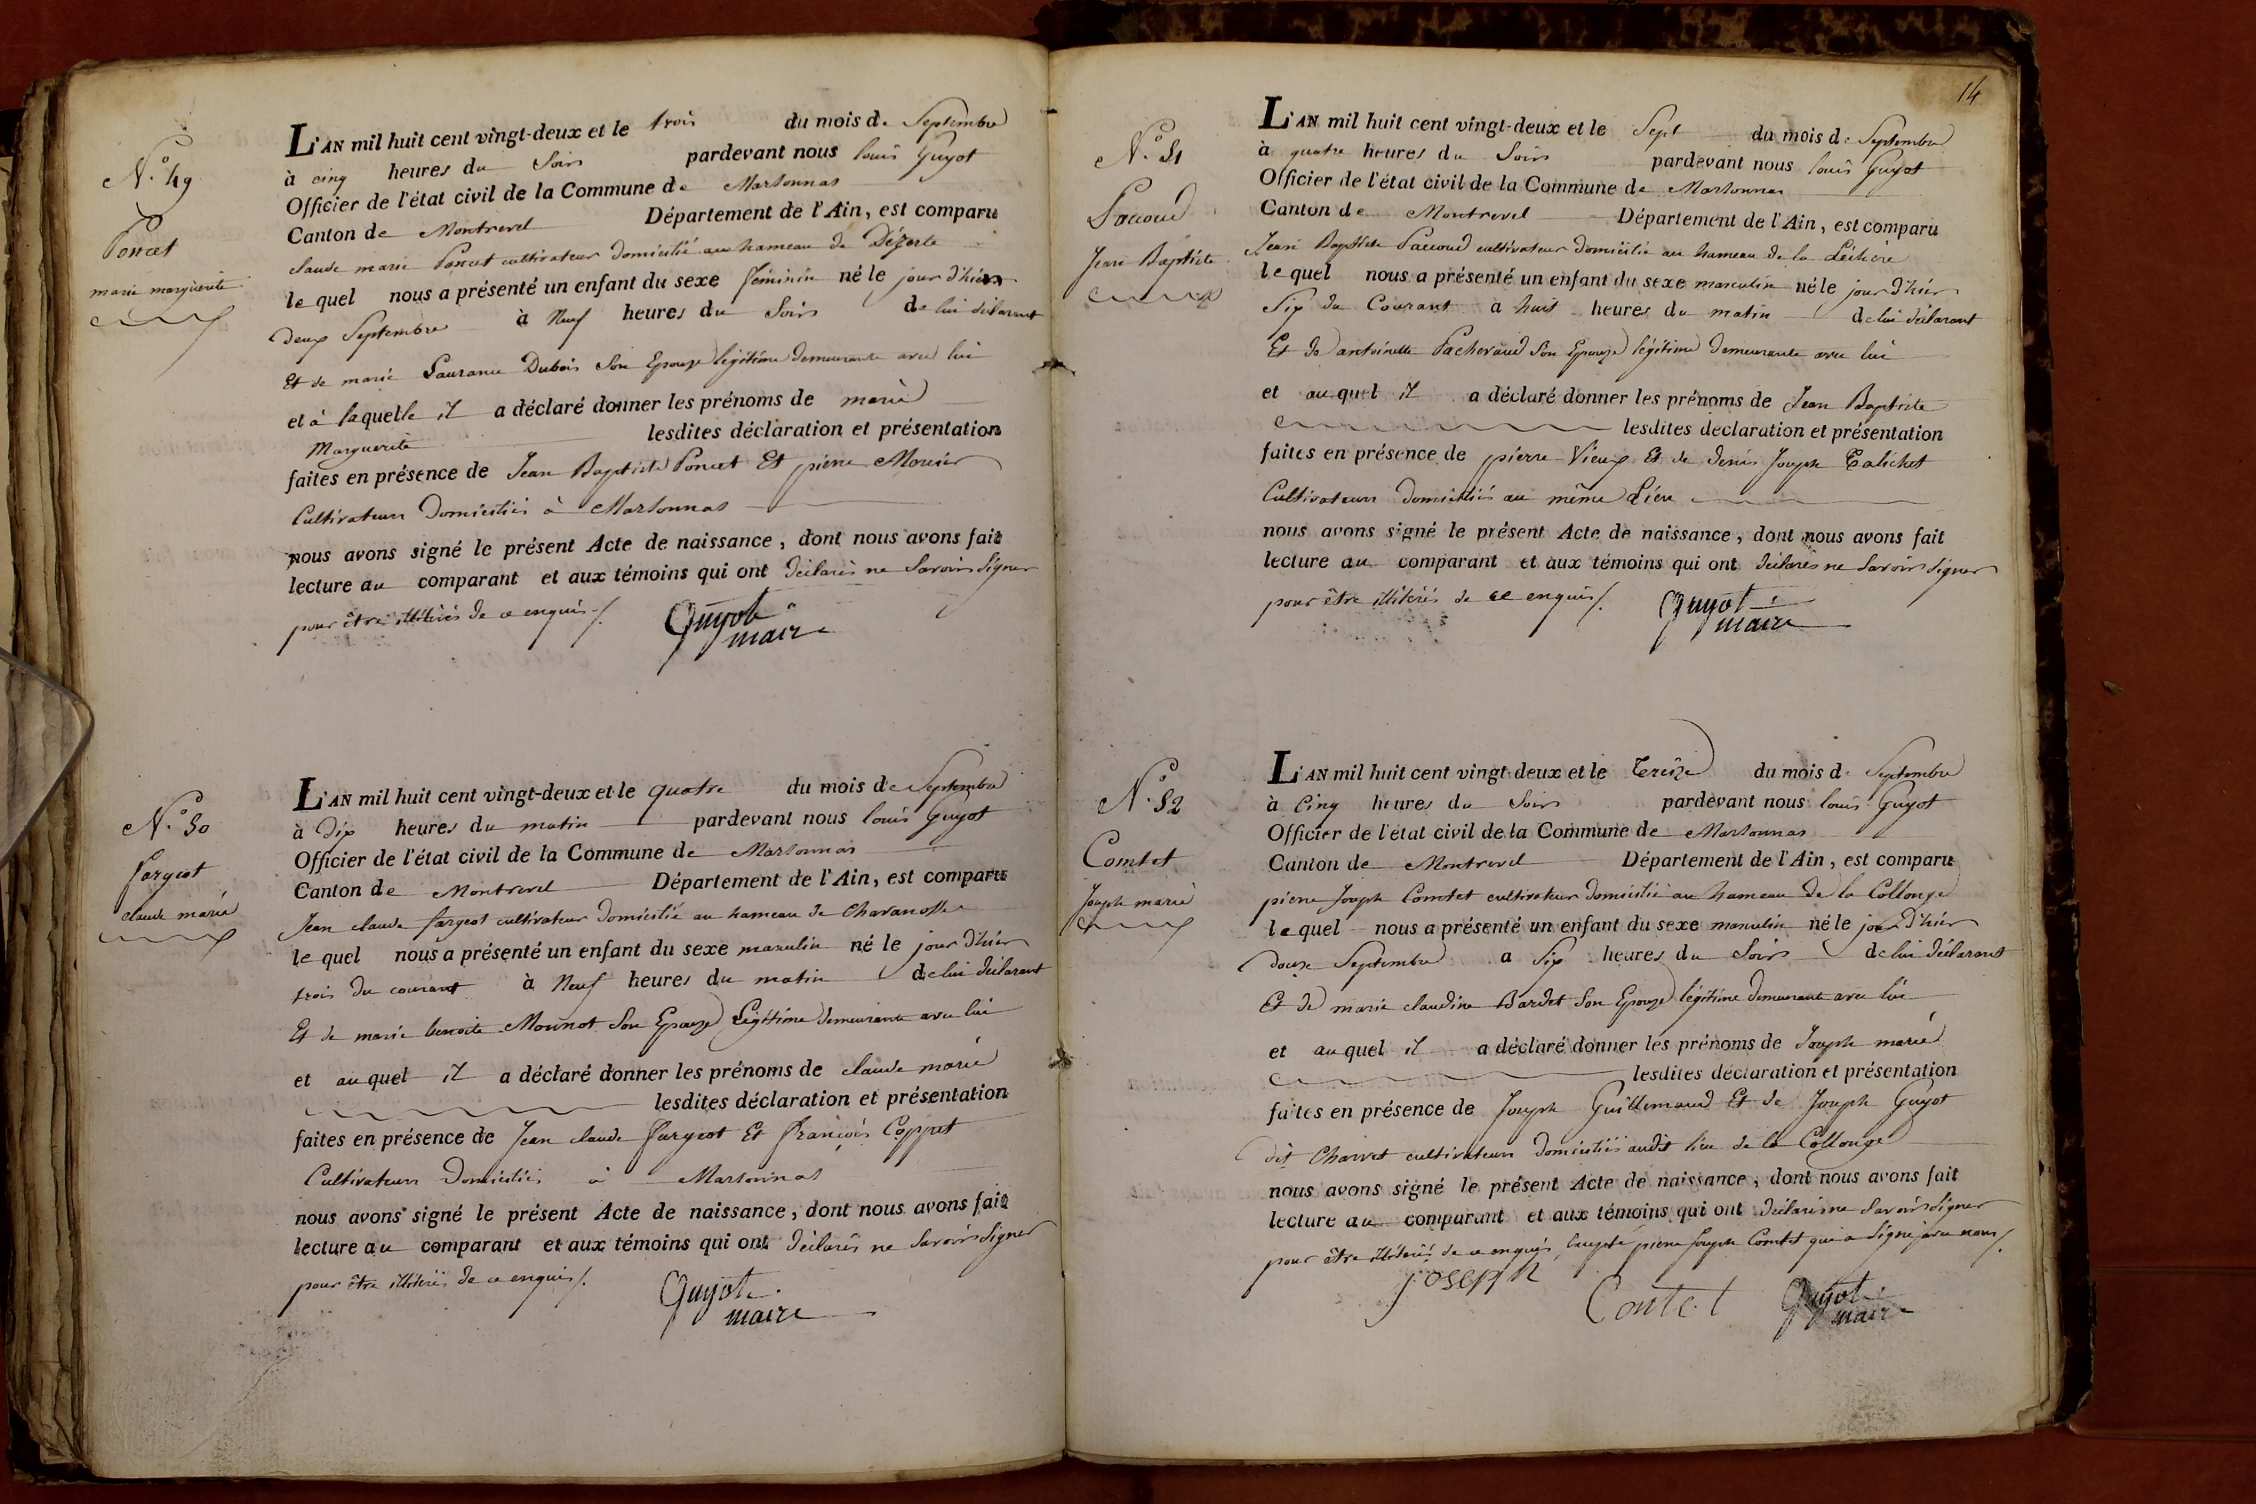 N.° 49
Poncet
marie marguerite
L'AN mil huit cent vingt-deux et le trois du mois de Septembre
à cinq heures du Soir pardevant nous louis Guyot
Officier de l'état civil de la Commune de Marsonnas
Canton de Montrevel Département de l'Ain, est comparu
claude marie Poncet cultivateur domicilié au hameau de Dézerte
le quel nous a présenté un enfant du sexe féminin né le jour d'hier
deux Septembre à Neuf heures du Soir de lui déclarant
Et de marie Laurance Dubois Son Epouze légitime demeurante avec lui
et à laquelle il a déclaré donner les prénoms de marie
Marguerite lesdites déclaration et présentation
faites en présence de Jean Baptiste Poncet Et pierre Morier
Cultivateurs Domiciliés à Marsonnas
nous avons signé le présent Acte de naissance, dont nous avons fait
lecture au comparant et aux témoins qui ont déclarés ne Savoir Signer
pour être illitérés de ce enquis ./.
Guyot
maire
N.° 50
fargeot
claude marie
L'AN mil huit cent vingt-deux et le quatre du mois de Septembre
à Dix heures du matin pardevant nous louis Guyot
Officier de l'état civil de la Commune de Marsonnas
Canton de Montrevel Département de l'Ain, est comparu
Jean claude fargeot cultivateur domicilié au hameau de Charanosse
le quel nous a présenté un enfant du sexe masculin né le jour d'hier
trois du courant à Neuf heures du matin de lui déclarant
Et de marie benoite Monnot Son Epouze Légitime demeurante avec lui
et auquel il a déclaré donner les prénoms de claude marie
lesdites déclaration et présentation
faites en présence de Jean claude fargeot Et françois Coppet
Cultivateurs Domiciliés à Marsonnas
nous avons signé le présent Acte de naissance, dont nous avons fait
lecture au comparant et aux témoins qui ont déclarés ne Savoir Signer
pour être illitérés de ce enquis ./.
Guyot
maire
14
N.° 51
Paccoud
Jean Baptiste
L'AN mil huit cent vingt-deux et le Sept du mois de Septembre
à quatre heures du Soir pardevant nous louis Guyot
Officier de l'état civil de la Commune de Marsonnas
Canton de Montrevel Département de l'Ain, est comparu
Jean Baptiste Paccoud cultivateur domicilié au hameau de la Léchère
le quel nous a présenté un enfant du sexe masculin né le jour d'hier
Six du Courant à huit heures du matin de lui déclarant
Et de antoinette Pacheraud Son Epouze légitime demeurante avec lui
et auquel il a déclaré donner les prénoms de Jean Baptiste
lesdites déclaration et présentation
faites en présence de pierre Vieux Et de denis Joseph Calichet
Cultivateurs domiciliés au même Lieu
nous avons signé le présent Acte de naissance, dont nous avons fait
lecture au comparant et aux témoins qui ont déclarés ne Savoir Signer
pour être illitérés de ce enquis ./.
Guyot
maire
N.° 52
Comtet
Joseph marie
L'AN mil huit cent vingt-deux et le Treize du mois de Septembre
à Cinq heures du Soir pardevant nous louis Guyot
Officier de l'état civil de la Commune de Marsonnas
Canton de Montrevel Département de l'Ain, est comparu
pierre Joseph Comtet cultivateur domicilié au hameau de la Collonge
le quel nous a présenté un enfant du sexe masculin né le jour d'hier
douze Septembre à Six heures du Soir de lui déclarant
Et de marie claudine Bardet Son Epouze légitime demeurant avec lui
et auquel il a déclaré donner les prénoms de Joseph marie
lesdites déclaration et présentation
faites en présence de Joseph Guillemaud Et de Joseph Guyot
dit Charvet cultivateurs domiciliés audit lieu de la Collonge
nous avons signé le présent Acte de naissance, dont nous avons fait
lecture au comparant et aux témoins qui ont déclarés ne Savoir Signer
pour être illitérés de ce enquis, Excepté pierre Joseph Comtet qui a Signé avec nous ./.
joseph
Contet
Guyot
maire